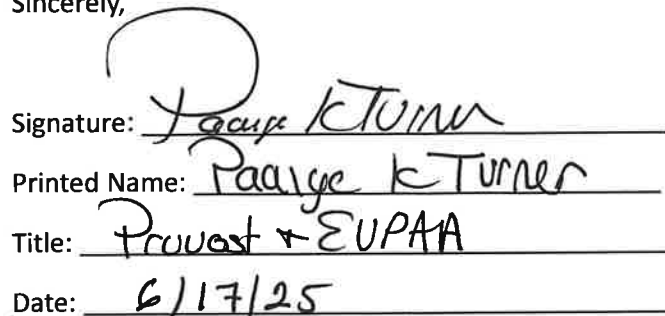 Sincerely,
Signature: Paaige K Turner
Printed Name: Paaige K Turner
Title: Provost + EVPAA
Date: 6/17/25